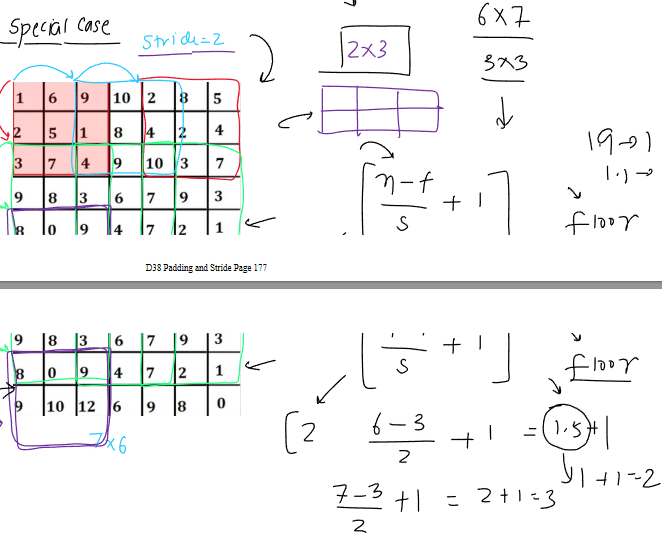 Special Case
Stride=2
6x7
2x3
3x3
1 6 9 10 2 8 5
2 5 1 8 4 2 4
3 7 4 9 10 3 7
9 8 3 6 7 9 3
8 0 9 4 7 2 1
[n-f/s + 1]
1.9→1
1.1→
floor
D38 Padding and Stride Page 177
9 8 3 6 7 9 3
8 0 9 4 7 2 1
9 10 12 6 9 8 0
7x6
s + 1]
floor
[2
6-3/2 + 1 = 1.5+1
1+1=2
7-3/2 +1 = 2+1=3